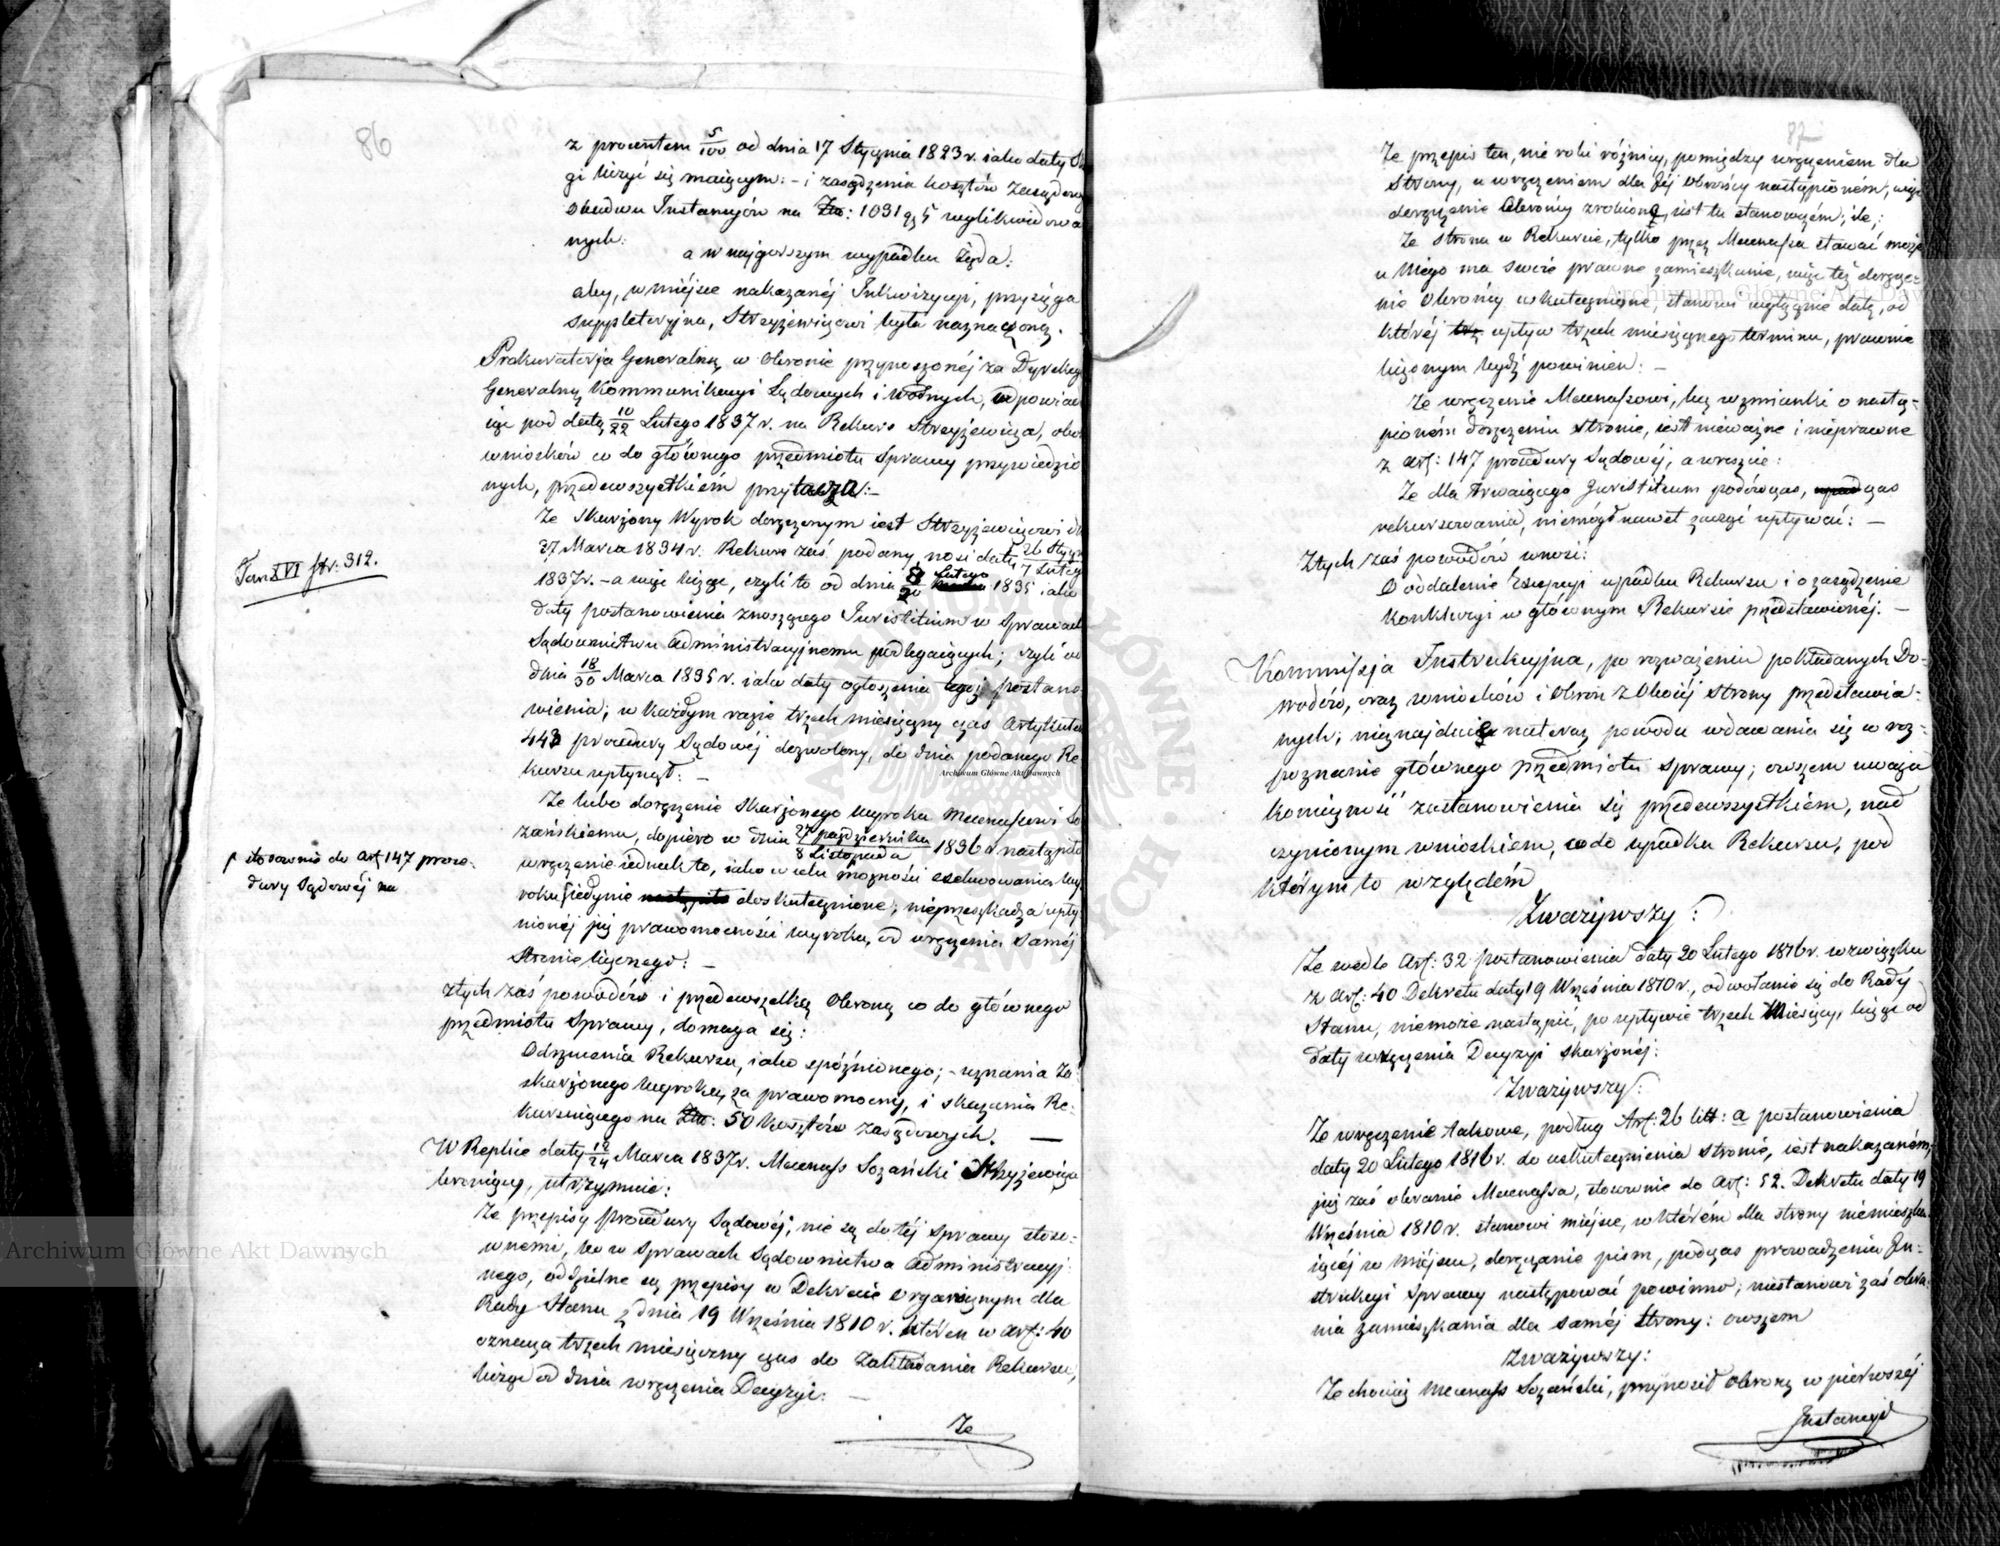 86
z procentem 5/100 od dnia 17 Stycznia 1823 r. iako daty
gi liczyć się maiącym: – i zasądzenia kosztów zasądow
obudwu Instancyów na Złto: 1031 gr 5 wylikwidowa
nych:
a w najgorszym wypadku żąda:
aby, w miéjsce nakazanéj Inkwizycyi, przysięga
suppletoryjna, Strzyżewiczowi była naznaczoną.
Prokuratorja Generalna, w obronie przynoszonéj za Dyrekcyą
Generalną Kommunikacyi Lądowych i wodnych, odpowiada
iąc pod datą 10/22 Lutego 1837 r. na Rekurs Strzyżewicza, obok
wniosków co do głównego przedmiotu Sprawy przywiedzio
nych, przedewszystkiém przytacza: –
Że skarżony Wyrok doręczonym iest Strzyżewiczowi d.
27 Marca 1834 r. Rekurs zaś podany, nosi datę 26 Stycz / 7 Lutego
Tom XVI str: 312.
1837 r. – a więc licząc, czyli to od dnia 8/20 Lutego 1835 iako
daty postanowienia znoszącego Juristitium w Sprawach
Sądownictwu administracyjnemu podlegaiących; czyli od
dnia 18/30 Marca 1835 r. iako daty ogłoszenia tegoż postano
wienia; w każdym razie trzech miesięczny czas Artykułem
443 procedury Sądowéj dozwolony, do dnia podanego Re
kursu upłynął: –
Że lubo doręczenie skarżonego wyroku Mecenasowi So
zańskiemu, dopiero w dniu 27 października / 8 Listopada 1836 r. nastąpiło
stosownie do art 147 proce-
dury Sądowéj na
wręczenie iednak to, iako w celu możności exekwowania wy
roku jedynie nastąpiło doskutecznione, nieprzeszkadza upły
nionéj już prawomocności wyroku, od wręczenia saméj
Stronie liczonego: –
Z tych zaś powodów i przedewszelką obroną co do głównego
przedmiotu Sprawy, domaga się:
Odrzucenia Rekursu, iako spóźnionego; – uznania Za
skarżonego wyroku, za prawomocny, i skazania Re-
kursuiącego na Złto: 50 kosztów zasądowych. —
W Replice daty 12/24 Marca 1837 r. Mecenass Sozański Strzyżewicza
broniący, utrzymuie:
Że przepisy procedury Sądowéj, nie są do téj sprawy stoso-
wnemi, bo w Sprawach Sądownictwa administracyj
nego, oddzielne są przepisy w Dekrecie organicznym dla
Rady Stanu z dnia 19 Września 1810 r. który w art: 40
oznacza trzech miesięczny czas do zakładania Rekursu,
licząc od dnia wręczenia Decyzyi: —
Że
87
Że przepis ten, nie robi różnicy, pomiędzy wręczeniem dla
Strony, a wręczeniem dla Jéj obrońcy nastąpioném, więc
doręczenie Obrońcy zrobione, iest tu stanowczém; ile,:
Że strona w Rekursie, tylko przez Mecenassa stawać może
u niego ma swoie prawne zamieszkanie, więc też doręcze-
nie Obrońcy uskutecznione, stanowi wyłącznie datę, od
któréj upływ trzech miesięcznego terminu, prawnie
liczonym bydź powinien: –
Że wręczenie Mecenasowi, bez wzmianki o nastą-
pioném doręczeniu stronie, iest nieważne i nieprawne
z art: 147 procedury Sądowéj, a wreszcie:
Że dla trwaiącego Juristitium podówczas, czas
rekursowania, niemógł nawet zacząć upływać: –
Z tych zaś powodów wnosi:
O oddalenie Excepcyi upadku Rekursu i o zasądzenie
konkluzyi w głównym Rekursie przedstawionéj. –
Kommissja Instrukcyjna, po rozważeniu pokładanych Do-
wodów, oraz wniosków i obron z Obóiéj strony przedstawia-
nych; nieznajduie na teraz powodu wdawania się w roz-
poznanie głównego przedmiotu sprawy; owszem uważa
konieczność zastanowienia się przedewszystkiém, nad
czynionym wnioskiem, co do upadku Rekursu, pod
którym to względém
Zważywszy:
Że wedle Art: 32 postanowienia daty 20 Lutego 1816 r. w związku
z Art: 40 Dekretu daty 19 Września 1810 r., odwołanie się do Rady
Stanu, niemoże nastąpić, po upływie trzech Miesięcy, licząc od
daty wręczenia Decyzyi skarżonéj:
Zważywszy:
Że wręczenie takowe, podług Art: 26 litt: a postanowienia
daty 20 Lutego 1816 r. do uskutecznienia stronie, iest nakazaném,
już zaś obranie Mecenassa, stosownie do art: 52. Dekretu daty 19
Września 1810 r. stanowi miéjsce, w którém dla strony niemieszka-
iącéj w miéjscu, doręczanie pism, podczas prowadzenia In-
strukcyi Sprawy następować powinno; niestanowi zaś obra-
nia zamieszkania dla saméj Strony: owszem
Zważywszy:
Że chociaż Mecenass Sozański, przynosił Obronę w piérwszéj
Instancyi